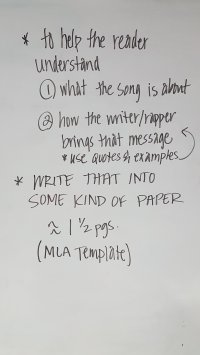 * to help the reader
understand
① what the song is about
② how the writer/rapper
brings that message
* use quotes & examples
* WRITE THAT INTO
SOME KIND OF PAPER
≈ 1 ½ pgs.
(MLA Template)